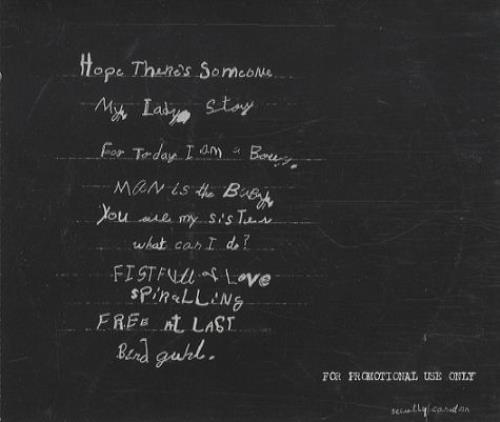 Hope There's Someone
My Lady Stay
For Today I am a Boy.
MAN is the Baby
You are my sister
what can I do?
FISTFUll of Love
SPiRaLLiNG
FREE at LAST
Bird guhl.
FOR PROMOTIONAL USE ONLY